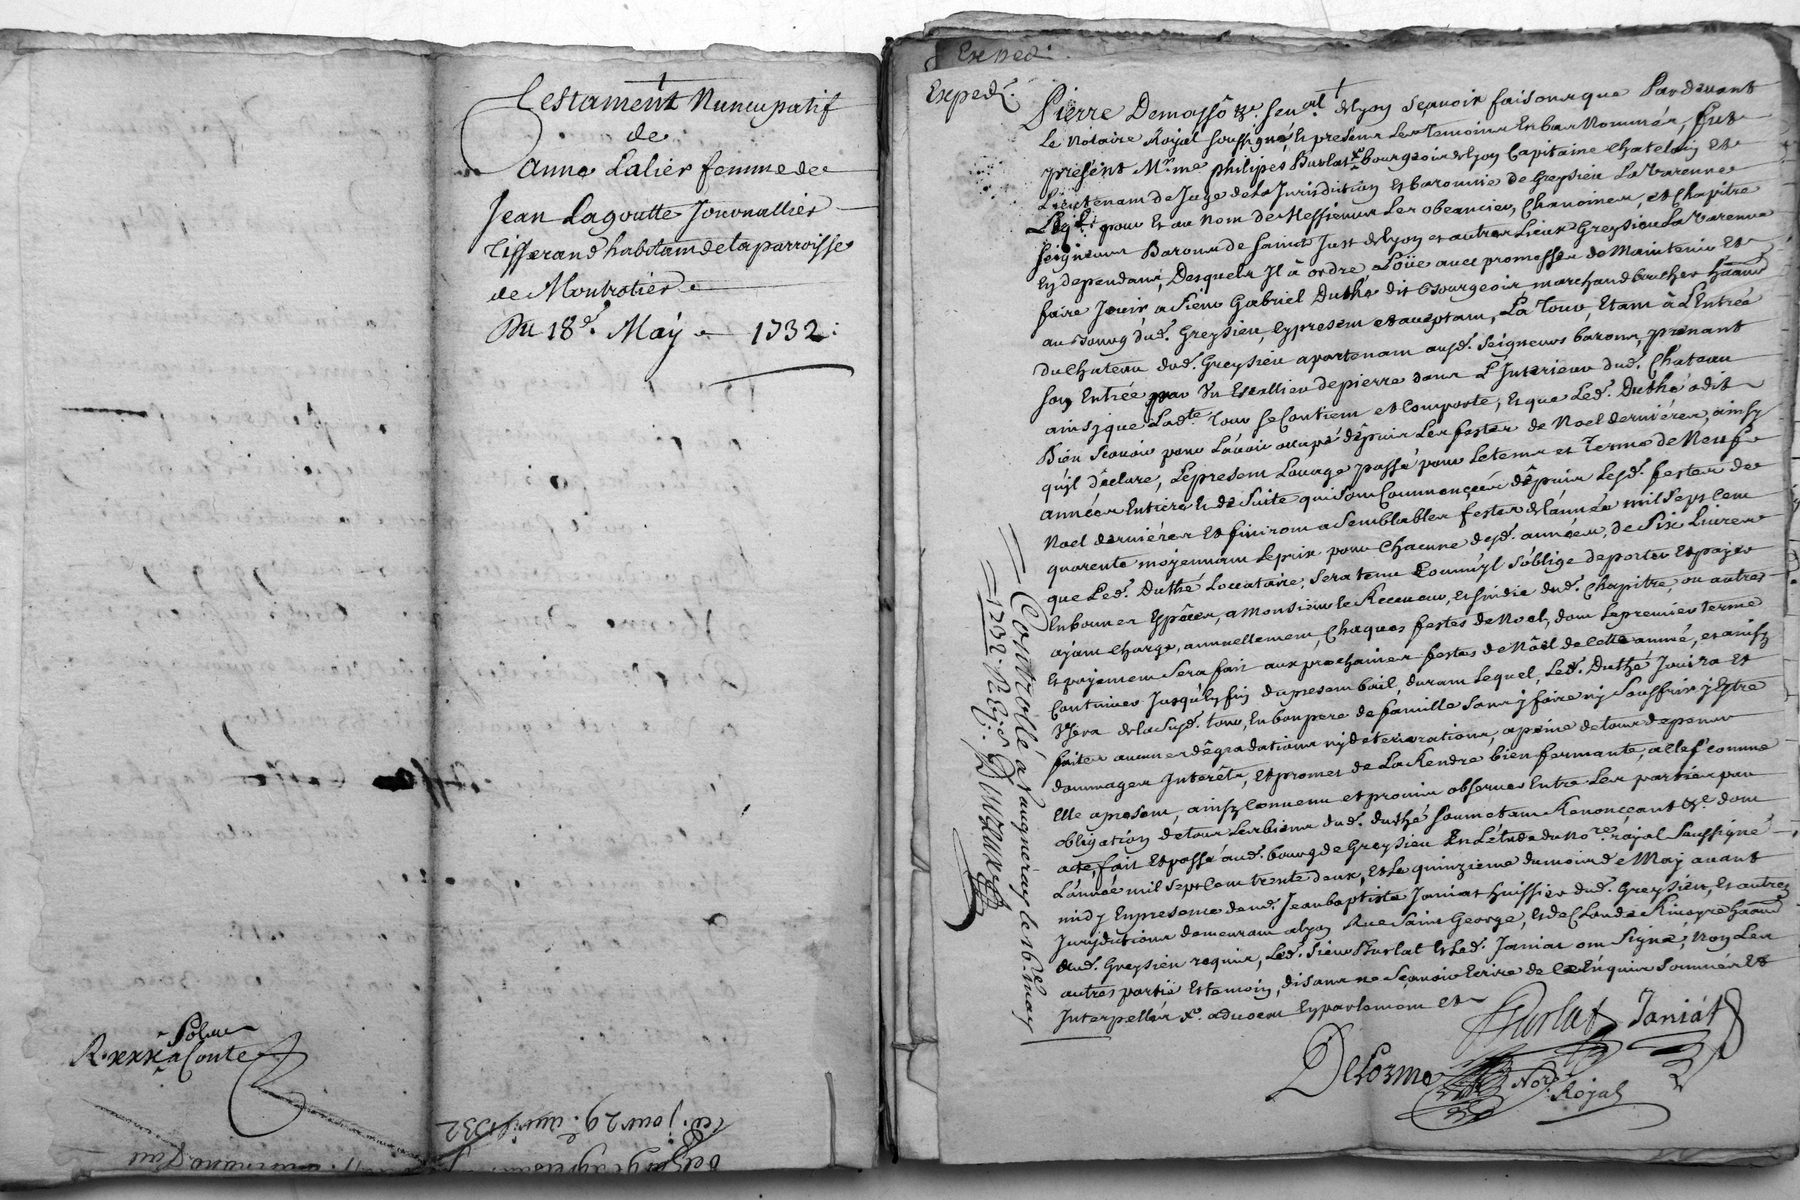 Testament Nuncupatif
de
Anne Lalier femme de
Jean Lagoutte Journallier
Tisserand habitam de la parroisse
de Montrotier
Du 18e. May 1732:
Solu
R. xxx s Conte
ce. jour 29e. avril 1732
Exped.
Exped.
Pierre Demasso &c. Senal. de Lyon Sçavoir faisons que Pardevant
Le Notaire Royal Soussigné, Et presens Les Temoins En bas Nommés, fut
présent Mr. me philipes Burlat Bourgeois de Lyon Capitaine Chatelain Et
Lieutenam de Juge de La Jurisdiction Et baronnie de Greysieu La Varenne
pour Et au Nom de Messieurs Les obeancier, Chanoines, et Chapitre
Seigneurs Barons de Saint Just de Lyon et autres Lieux Greysieu La Varenne
En dependans, Desquels Il à ordre, Loüe avec promesse de Maintenir Et
faire Jouir a Sieur Gabriel Duthé dit Bourgeois marchand boucher
au Bourg dud. Greysieu, Cy present et acceptam, La Tour, Etam à L'Entrée
du Chateau dud. Greysieu apartenam ausd. Seigneurs barons, prenant
Son Entrée par Un Escallier de pierre dans L'Interieur dud. Chateau
ainsy que Ladte. Tour Se Contient et Comporte, Et que Led. Duthé à dit
Bien Sçavoir pour L'avoir occupé dépuis Les festes de Noel derniéres, ainsy
qu'il déclare, Le present Louage passé pour Le tems et Terme de Neuf
années Entieres Et de Suite qui Som Commencées dépuis Lesd. festes de
Noel derniéres Et finirom a Semblables festes de L'année mil Sept Cem
quarente moyennam Le prix pour Chacune desd. années, de Six Livres
que Led. Duthé Locataire, Sera tenu Comm'yl S'oblige de porter Et payer
En bonnes Espéces, a Monsieur le Receveur, Et Sindic dud. Chapitre, ou autres
ayam Charge, annuellement, Chaques festes de Noel, dom Le premier terme
Et payement Sera fait aux prochaines festes de Nöel de Cette année, et ainsy
Continuer Jusqu'a fin du presem bail, duram Lequel, Led. Duthé Jouira Et
Usera de La Susd. tour, En bon pere de famille Sans y faire ny Souffrir y Estre
faites aucunes dégradations ny deteriorations, a peine de tous depens
dommages Interéts, Et promet de La Rendre bien fermante, a Clef comme
Elle a presem, ainsy Convenu et promis observer Entre Les parties par
obligation de tous Les biens dud. duthé Soumetam Renonçeant &c. dom
acte, fait Et passé aud. bourg de Greysieu En L'étude du Nore. royal Soussigné
L'année mil Sept Cem trente deux, Et Le quinzieme du mois de May avant
midy En presence de me. Jean baptiste Janiat huissier dud. Greysieu, Et autres
Jurisdictions demeuram a Lyon Rue Saint George, Et de
dud. Greysieu requis, Led. Sieur Burlat Et Led. Janiat om Signé, Non Les
autres partie Et temoin, disans ne Sçavoir Ecrire de Ce Enquis Sommés Et
Interpellés
Burlat Janiat
Delorme Nore.
Royal
Controllé a Vaugneray le 16e. may
1732. R. Douzou